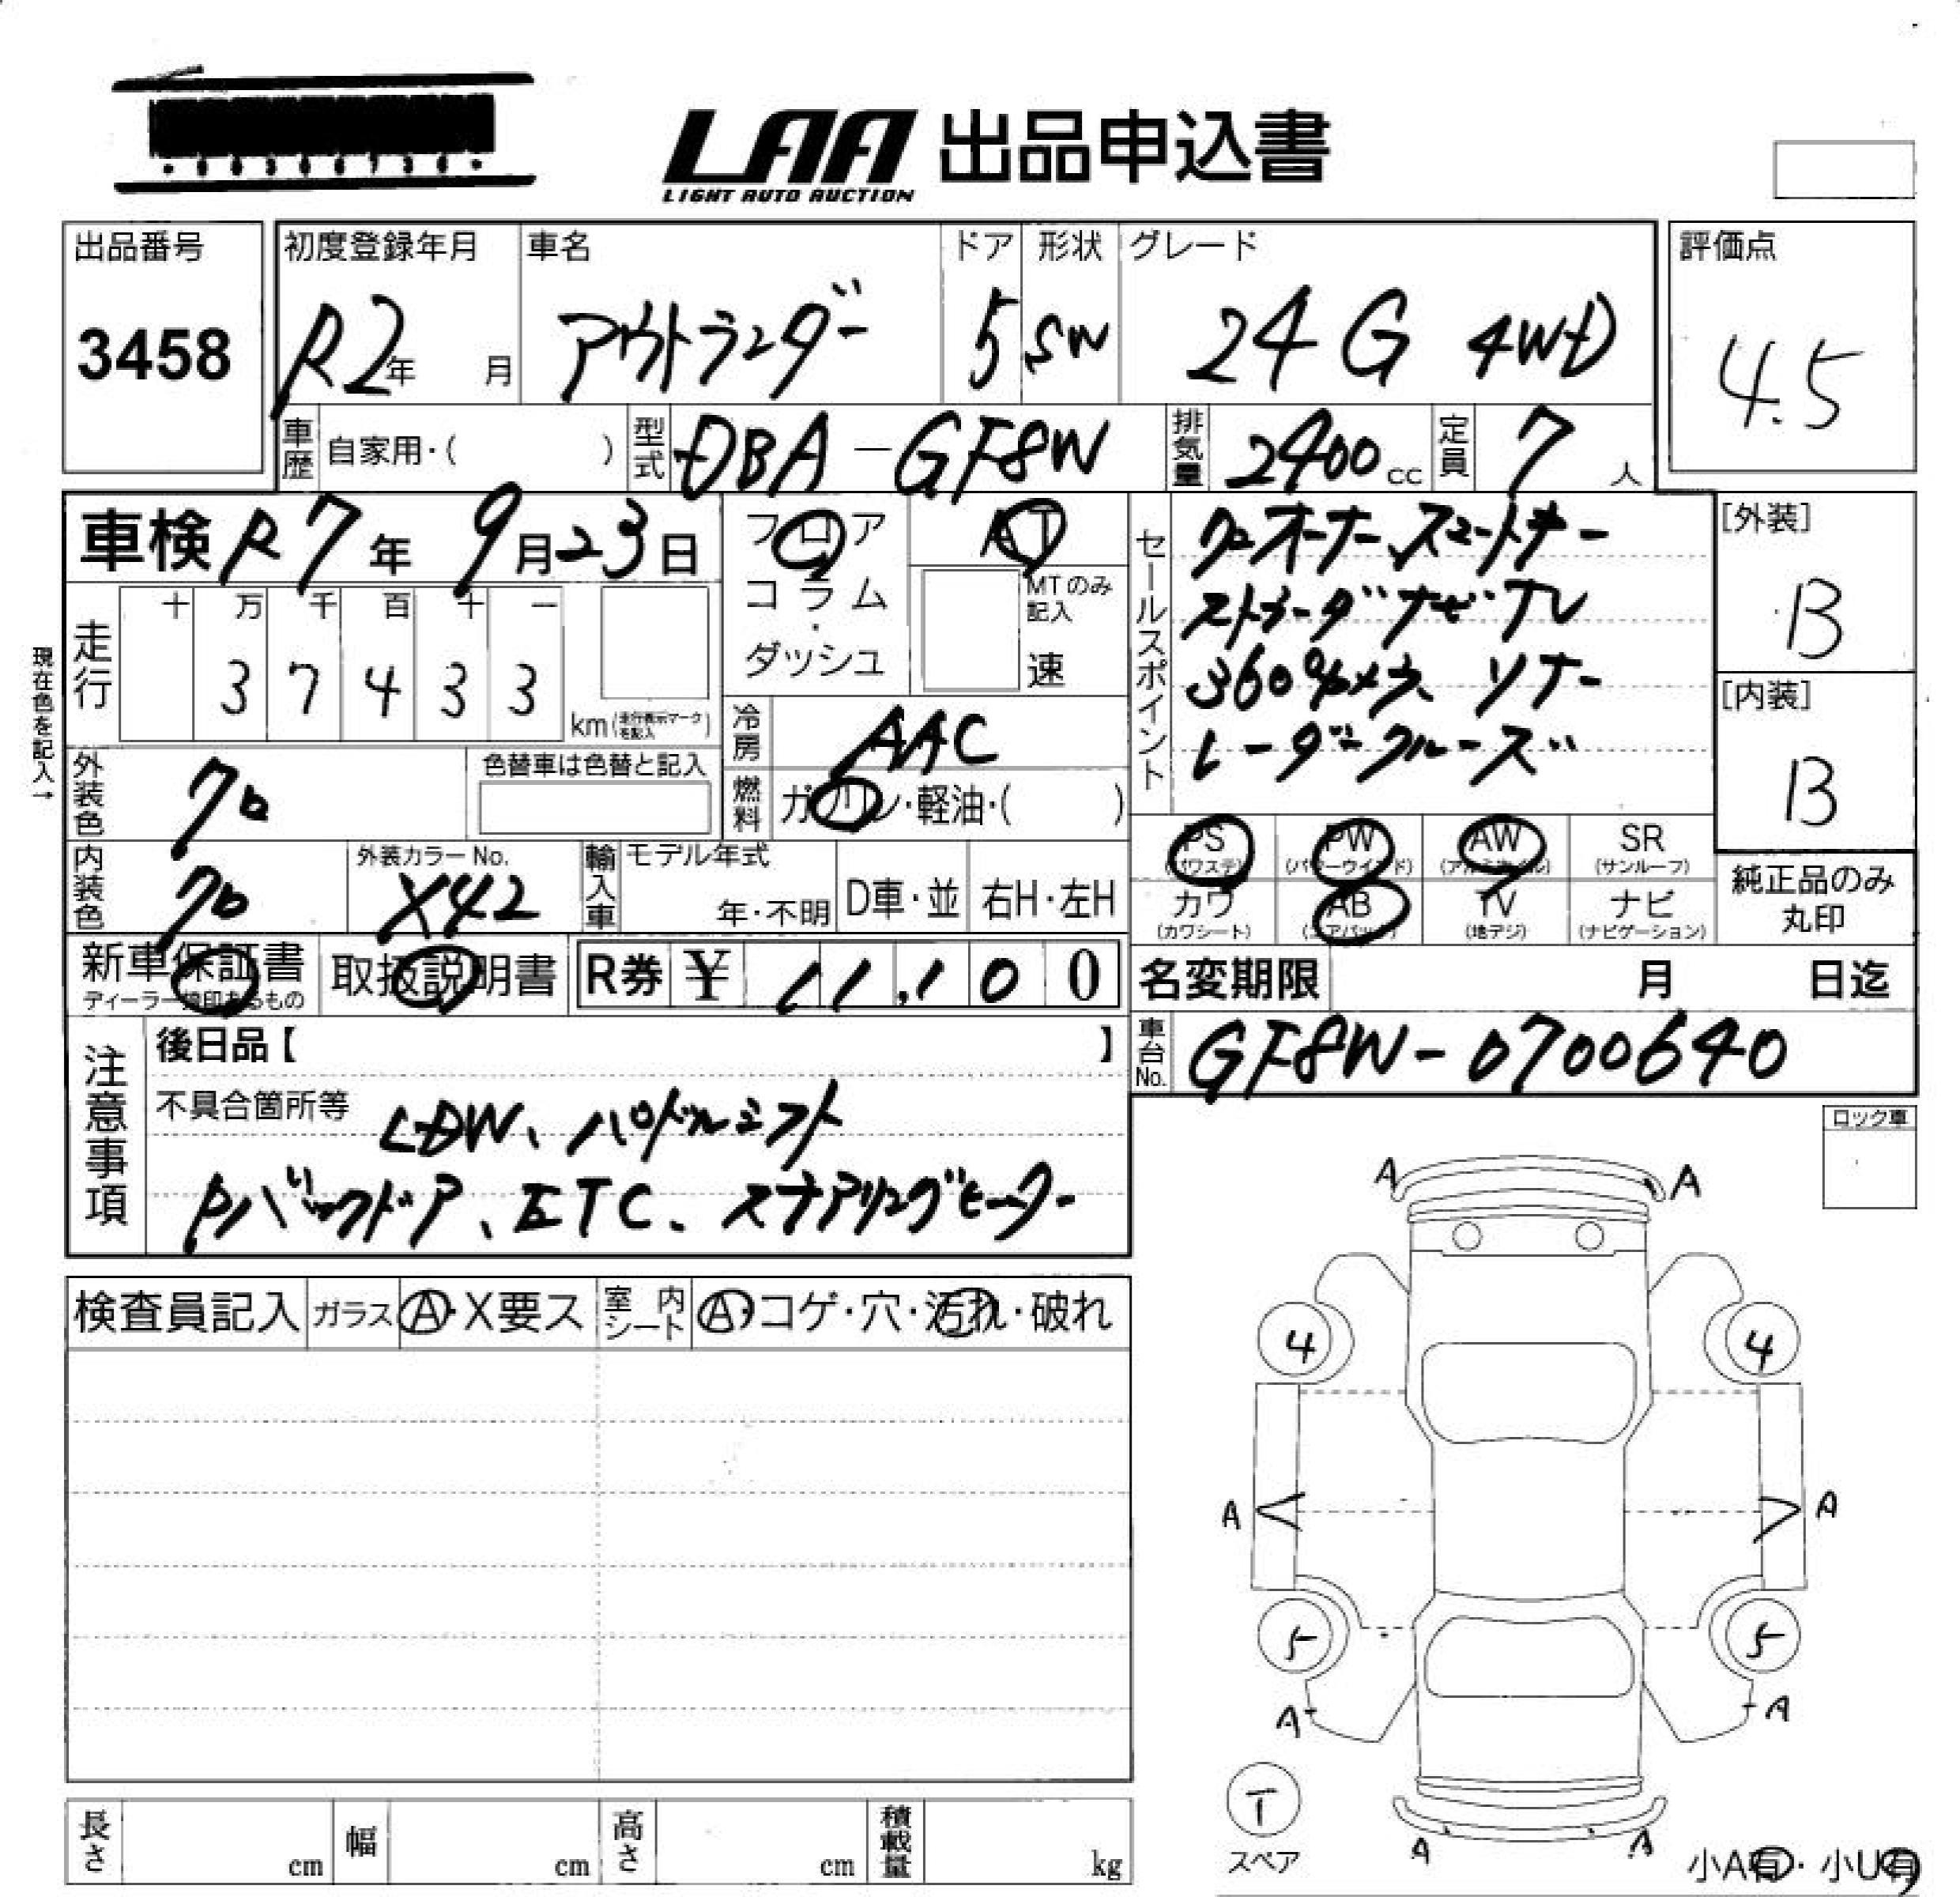 LAA 出品申込書
LIGHT AUTO AUCTION
出品番号
3458
初度登録年月
R2年 月
車名
アウトランダー
ドア
5
形状
SW
グレード
24G 4WD
評価点
4.5
車歴 自家用・( )
型式 DBA-GF8W
排気量 2400cc
定員 7人
車検 R7年9月23日
走行
十 万 千 百 十 一
3 7 4 3 3
km(走行表示マークを記入)
現在色を記入→
フロア
コラム・
ダッシュ
AT
MTのみ記入
速
冷房 AAC
燃料 ガソリン・軽油・( )
セールスポイント
ワンオーナー、スマートキー
ストラーダナビ・TV
360°カメラ、ソナー
レーダークルーズ
[外装]
B
[内装]
B
外装色 クロ
色替車は色替と記入
内装色 クロ
外装カラーNo.
X42
輸入車 モデル年式
年・不明
D車・並
右H・左H
PS(パワステ)
PW(パワーウインド)
AW(アルミホイル)
SR(サンルーフ)
カワ(カワシート)
AB(エアバッグ)
TV(地デジ)
ナビ(ナビゲーション)
純正品のみ丸印
新車保証書
ディーラー捺印あるもの
取扱説明書
R券 ¥ 11,100
名変期限 月 日迄
車台No. GF8W-0700640
注意事項
後日品【 】
不具合箇所等 LDW、パドルシフト
Pバックドア、ETC、ステアリングヒーター
ロック車
検査員記入
ガラス A・X要ス
室内シート A・コゲ・穴・汚れ・破れ
A A
4 4
A A
5 5
A A
T
スペア
A A
小A有・小U有
長さ cm
幅 cm
高さ cm
積載量 kg